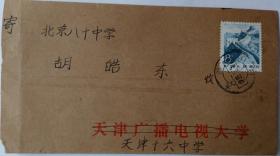 寄
北京八十中学
胡皓东
天津广播电视大学
天津十六中学